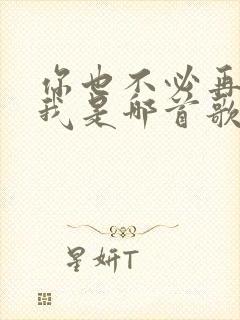 你也不必再
我是哪首歌
星妍T